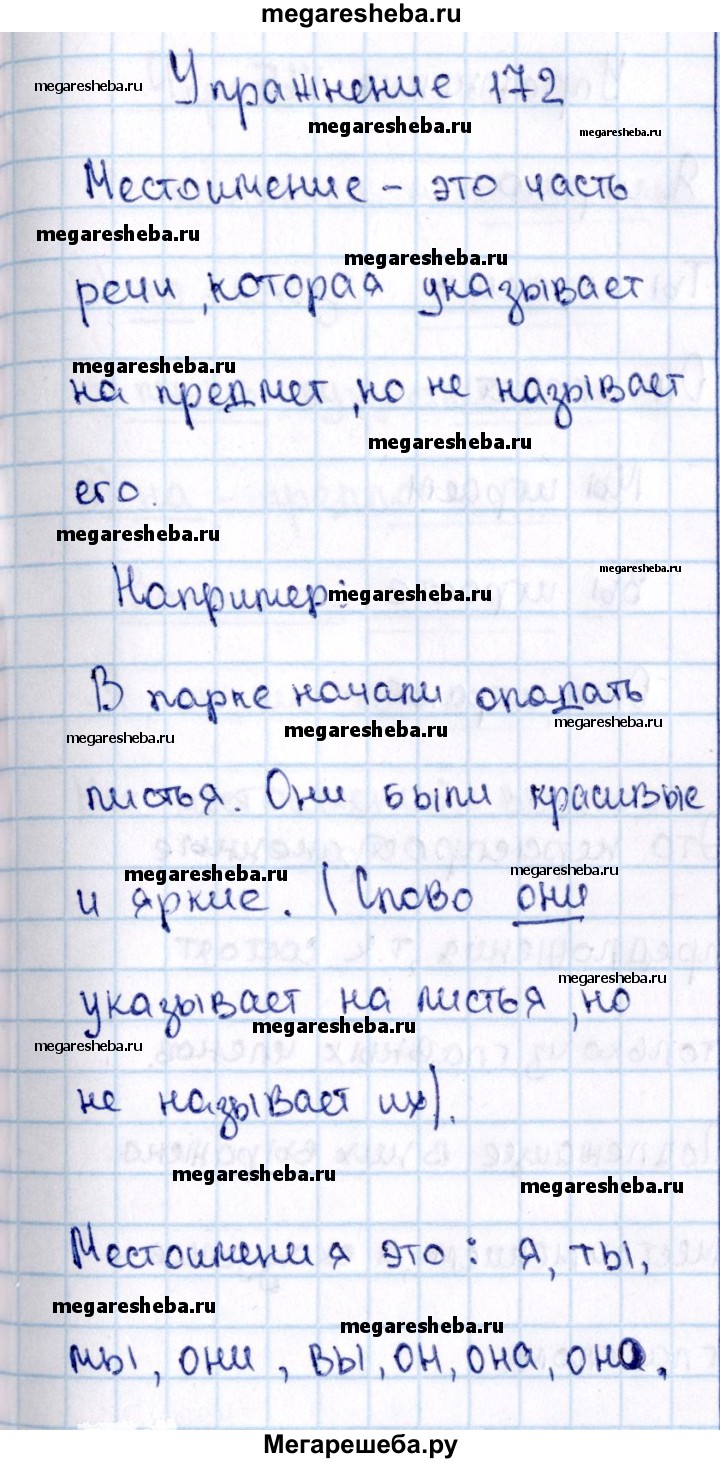 megaresheba.ru
Упражнение 172
megaresheba.ru
megaresheba.ru
megaresheba.ru
Местоимение – это часть
megaresheba.ru
megaresheba.ru
речи, которая указывает
megaresheba.ru
на предмет, но не называет
megaresheba.ru
его.
megaresheba.ru
megaresheba.ru
Например:
megaresheba.ru
В парке начали опадать
megaresheba.ru
megaresheba.ru
megaresheba.ru
листья. Они были красивые
megaresheba.ru
megaresheba.ru
и яркие. (Слово они
megaresheba.ru
указывает на листья, но
megaresheba.ru
megaresheba.ru
не называет их).
megaresheba.ru
megaresheba.ru
Местоимения это: я, ты,
megaresheba.ru
megaresheba.ru
мы, они, вы, он, она, оно.
Мегарешеба.ру